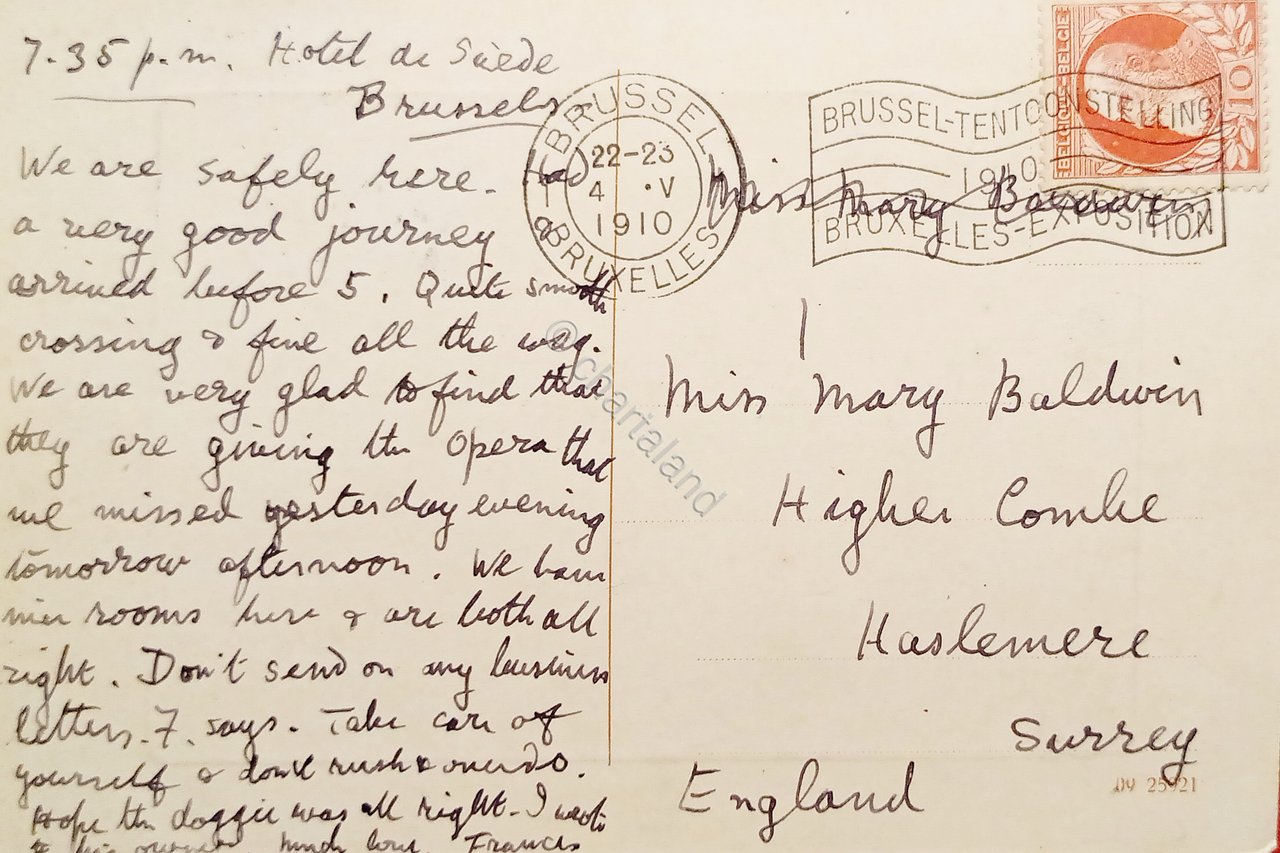 7.35 p.m. Hotel de Suède
Brussels
We are safely here. Had
a very good journey &
arrived before 5. Quite smooth
crossing & fine all the way.
We are very glad to find that
they are giving the Opera that
we missed yesterday evening
tomorrow afternoon. We have
nice rooms here & are both all
right. Don't send on any business
letters. F. says. Take care of
yourself & don't rush & overdo.
Hope the doggie was all right. I wrote
to his owner. Much love. Frances
BRUSSEL
22-23
4 ·V
1910
BRUXELLES
BRUSSEL-TENTOONSTELLING
1910
BRUXELLES-EXPOSITION
BELGIQUE-BELGIË
10
Miss Mary Baldwin
Miss Mary Baldwin
Higher Combe
Haslemere
Surrey
England
09 25921
©chartaland